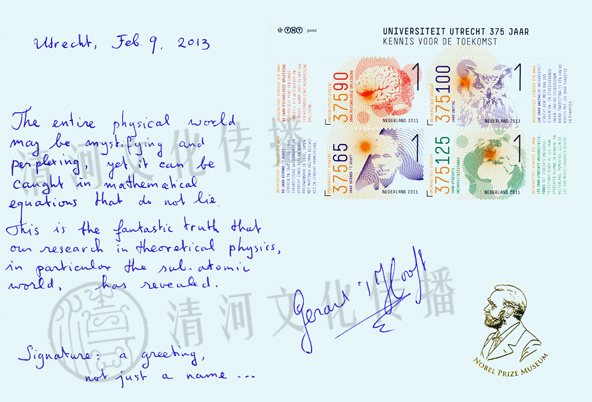 Utrecht, Feb. 9, 2013
The entire physical world
may be mystifying and
perplexing, yet it can be
caught in mathematical
equations that do not lie.
This is the fantastic truth that
our research in theoretical physics,
in particular the sub-atomic
world, has revealed.
Signature: a greeting,
not just a name ...
Gerard 't Hooft
TNT post
UNIVERSITEIT UTRECHT 375 JAAR
KENNIS VOOR DE TOEKOMST
37590
1
NEDERLAND 2011
375100
1
NEDERLAND 2011
37565
1
NEDERLAND 2011
375125
1
NEDERLAND 2011
NOBEL PRIZE MUSEUM
清河文化传播
清河文化传播